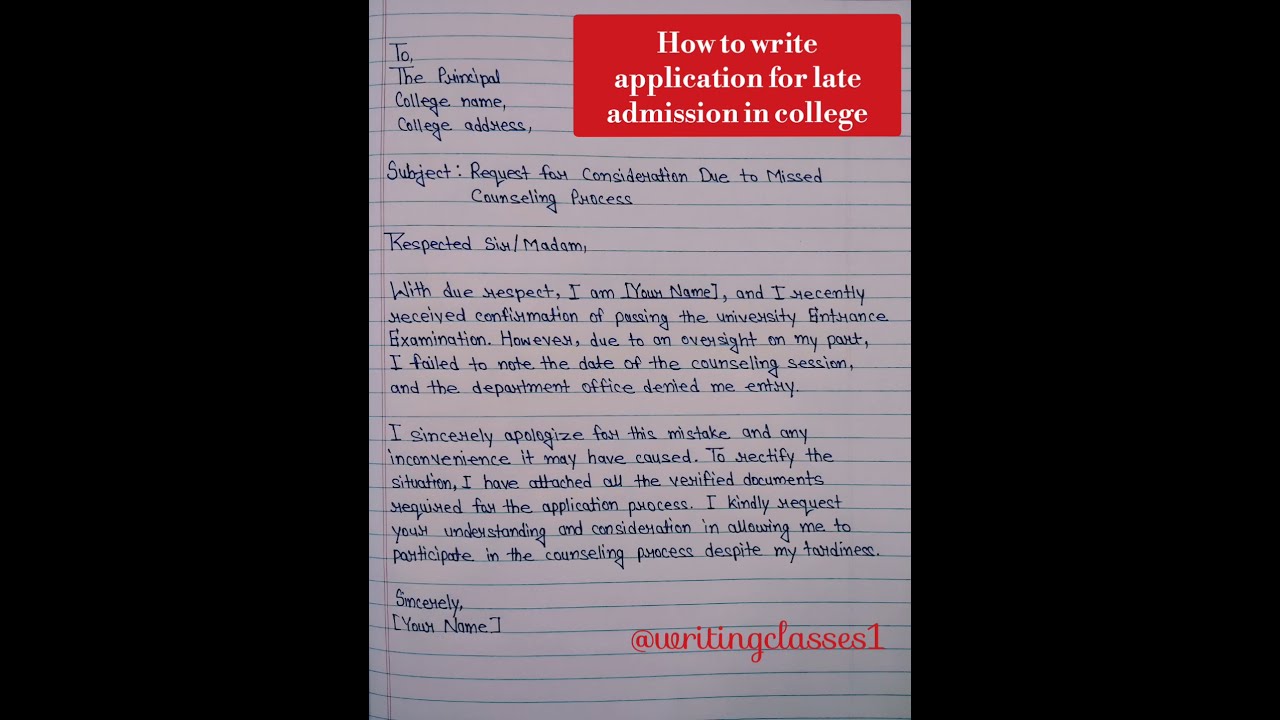 How to write
application for late
admission in college
To,
The Principal
College name,
College address,
Subject: Request for Consideration Due to Missed
Counseling Process
Respected Sir/Madam,
With due respect, I am [Your Name], and I recently
received confirmation of passing the university Entrance
Examination. However, due to an oversight on my part,
I failed to note the date of the counseling session,
and the department office denied me entry.
I sincerely apologize for this mistake and any
inconvenience it may have caused. To rectify the
situation, I have attached all the verified documents
required for the application process. I kindly request
your understanding and consideration in allowing me to
participate in the counseling process despite my tardiness.
Sincerely,
[Your Name]
@writingclasses1